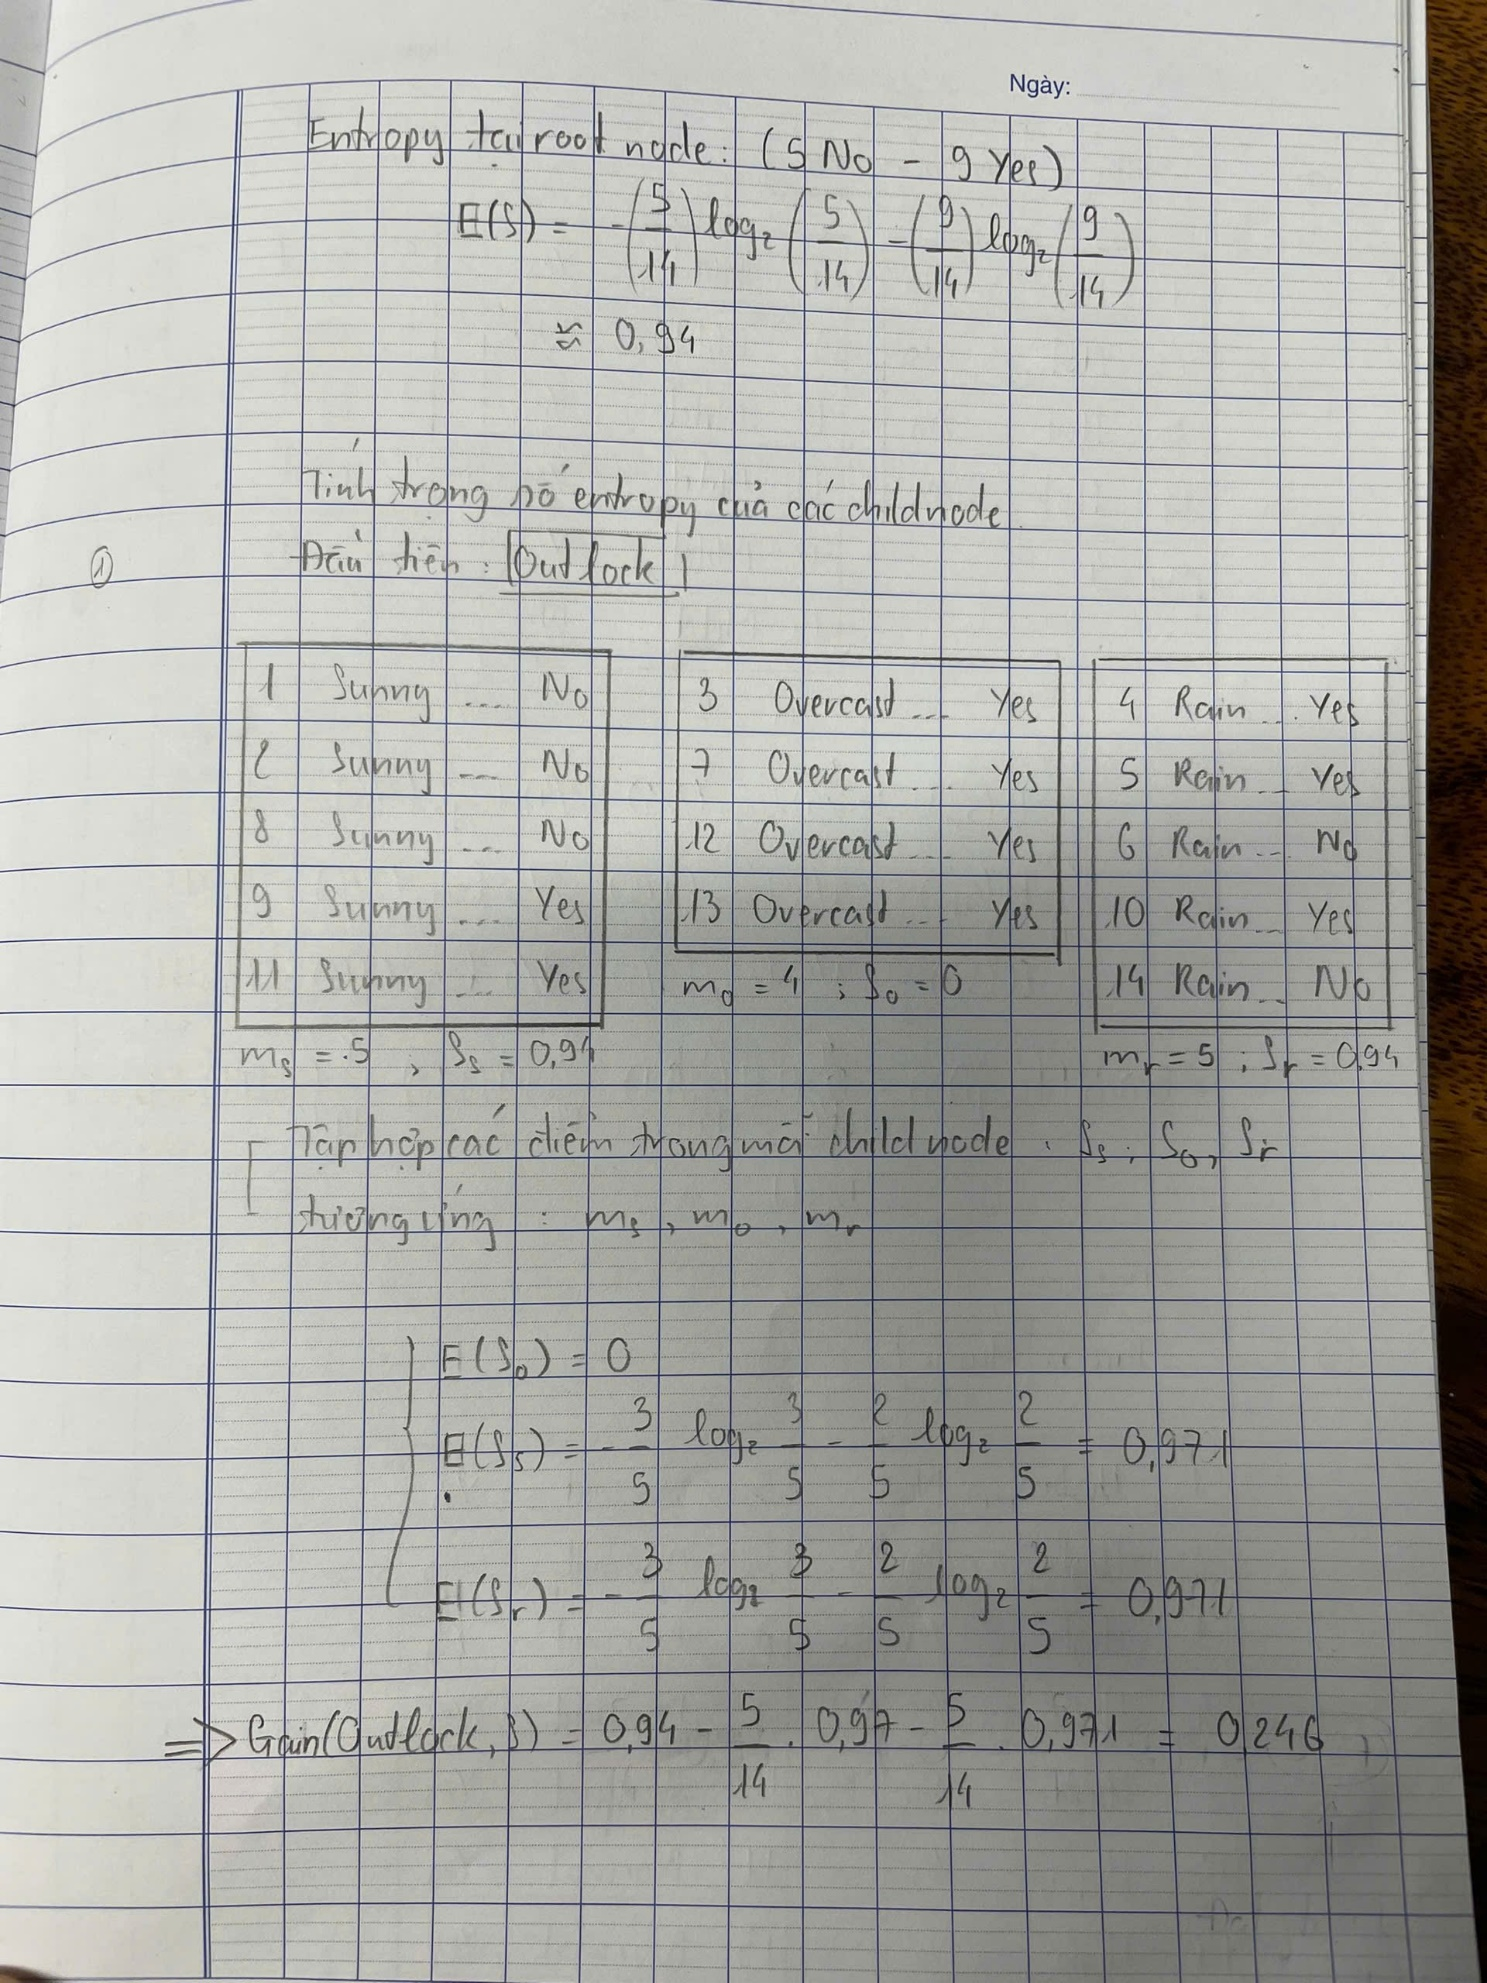 Ngày:
Entropy tại root node: (5 No - 9 Yes)
E(S) = -(5/14) log₂ (5/14) - (9/14) log₂ (9/14)
≈ 0,94
Tính trọng số entropy của các child node
① Đầu tiên: Outlock
1 Sunny ... No
2 Sunny ... No
8 Sunny ... No
9 Sunny ... Yes
11 Sunny ... Yes
mₛ = 5 , Sₛ = 0,94
3 Overcast ... Yes
7 Overcast ... Yes
12 Overcast ... Yes
13 Overcast ... Yes
mₒ = 4 ; Sₒ = 0
4 Rain ... Yes
5 Rain ... Yes
6 Rain ... No
10 Rain ... Yes
14 Rain ... No
mᵣ = 5 ; Sᵣ = 0,94
Tập hợp các điểm trong mỗi child node : Sₛ, Sₒ, Sᵣ
tương ứng : mₛ, mₒ, mᵣ
E(Sₒ) = 0
E(Sₛ) = - 3/5 log₂ 3/5 - 2/5 log₂ 2/5 = 0,971
E(Sᵣ) = - 3/5 log₂ 3/5 - 2/5 log₂ 2/5 = 0,971
=> Gain(Outlock, S) = 0,94 - 5/14 . 0,97 - 5/14 . 0,971 = 0,246